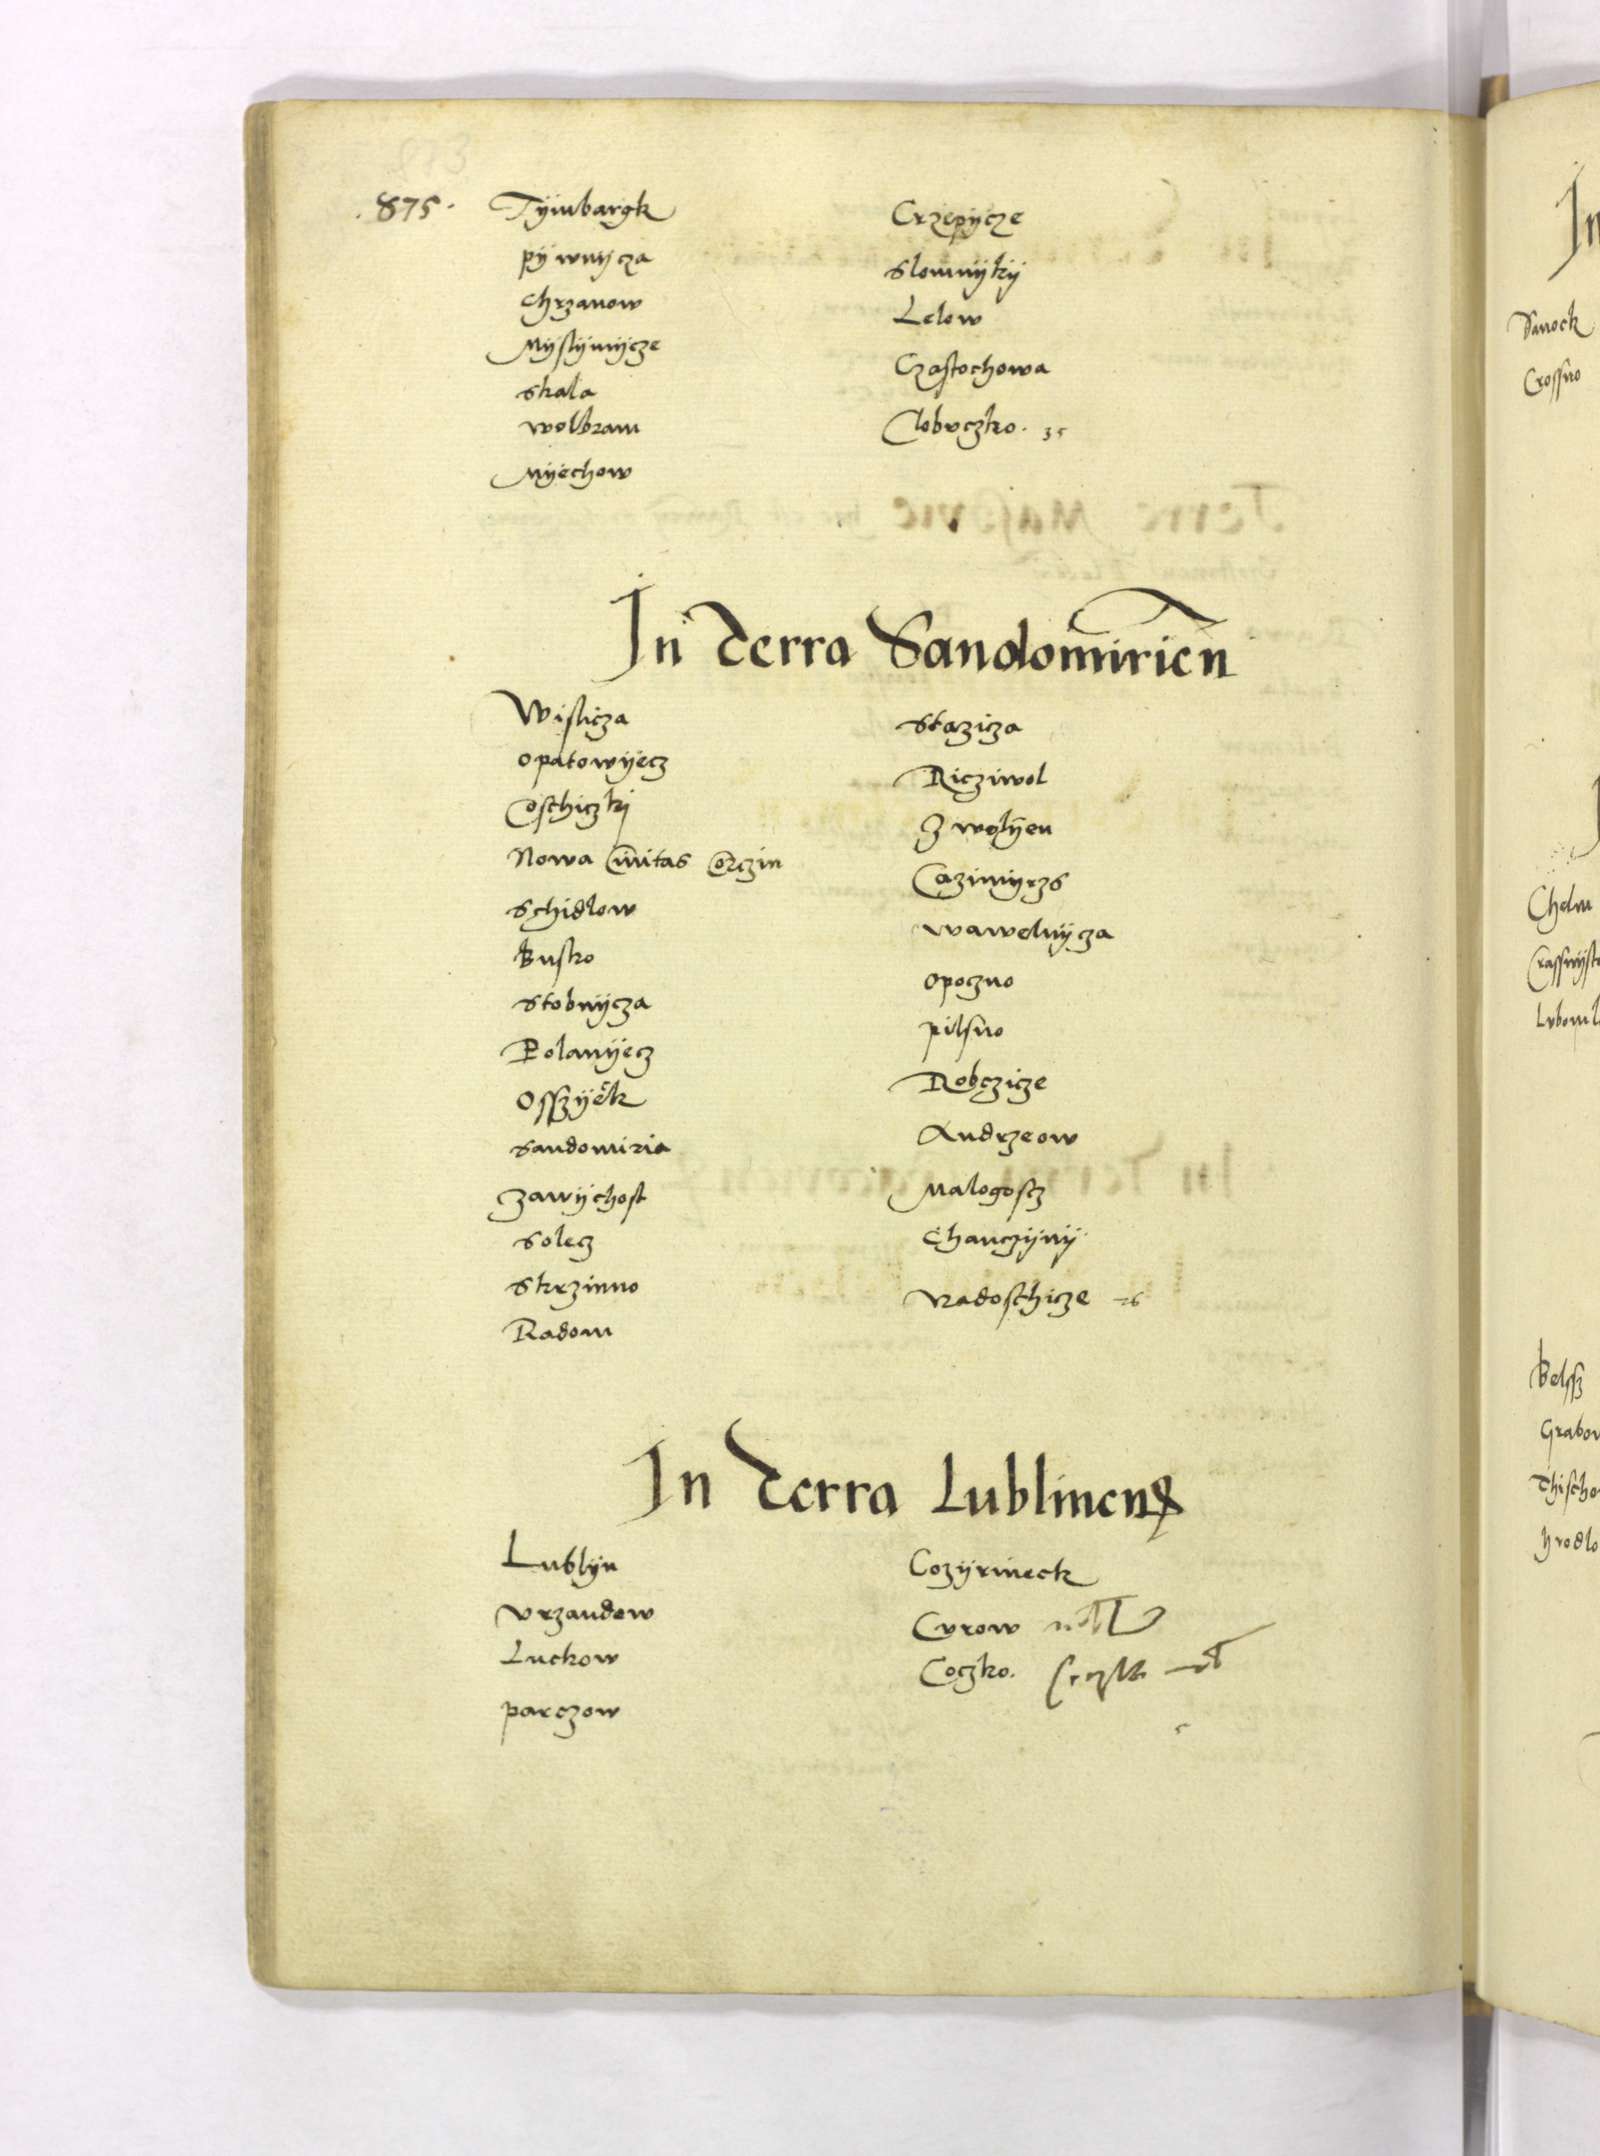 873
.875.
Tymbargk
pÿwnÿcza
Chrzanow
Mÿslÿmÿcze
Skala
Wolbram
Mÿechow
Crzepÿcze
Slomnÿkÿ
Lelow
Czastochowa
Clobvczko. 35
In Terra Sandomirien
Wislicza
Opatowÿecz
Coschiczkj
Nowa Civitas Corczin
Schidlow
Busko
Stobnÿcza
Polanÿecz
Osszÿek
Sandomiria
Zawÿchost
Solecz
Skrzinno
Radom
Stazicza
Ricziwol
Zwolÿen
Cazimÿrzs
Wawelnÿcza
Opoczno
pilsno
Robczicze
Andrzeow
Malogoscz
Chanczÿnÿ
Radoschicze 26
In Terra Lublinen
Lublÿn
Vrzandow
Luckow
parczow
Cozÿrineck
Cvrow
Coczko.
5
Sanock
Crossno
Chelm
Belsz